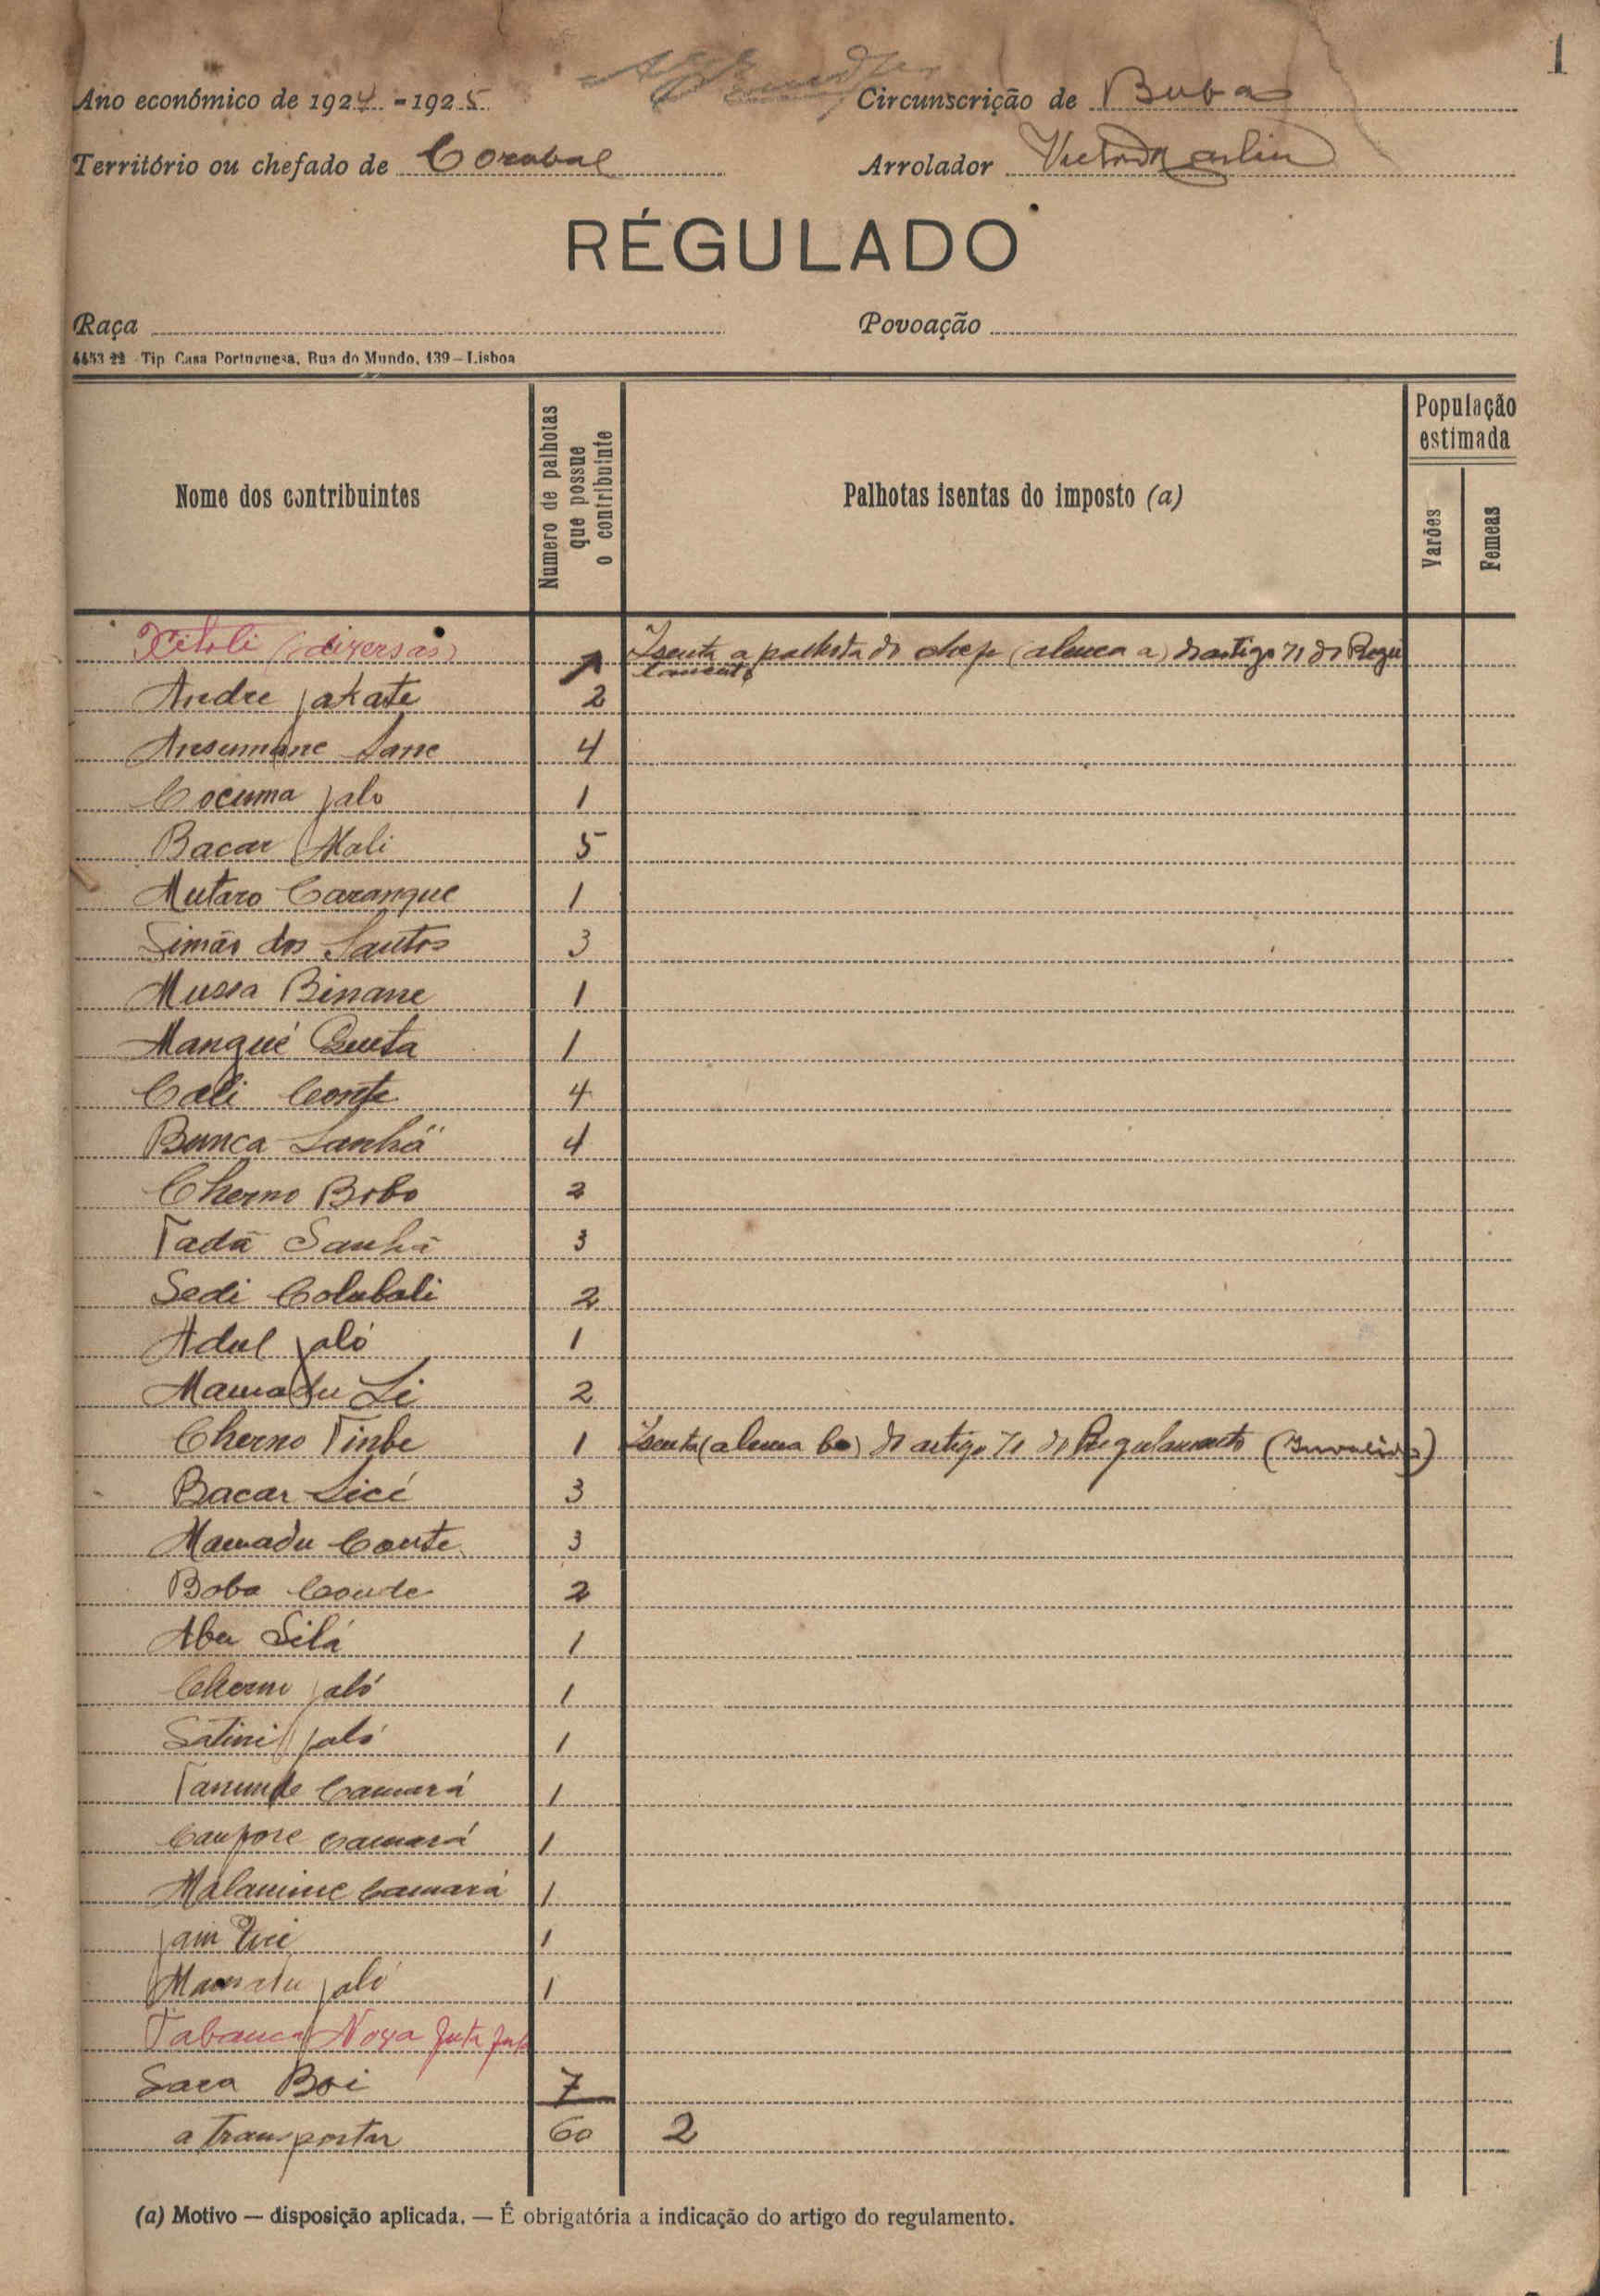 1
Ano económico de 1924 - 1925
Circunscrição de Buba
Território ou chefado de Corubal
Arrolador Victor Martins
RÉGULADO
Raça
Povoação
4453 22 - Tip. Casa Portuguesa, Rua do Mundo, 139 — Lisboa
Nome dos contribuintes
Numero de palhotas que possue o contribuinte
Palhotas isentas do imposto (a)
População estimada
Varões
Femeas
Xitoli (diversas)
Isenta a palhota do chefe (alinea a) do artigo 71 do Regu
lamento
Andre Jakate 2
Ansumane Sane 4
Cocuma Jalo 1
Bacar Mali 5
Mutaro Caranque 1
Simão dos Santos 3
Mussa Binane 1
Mangué Queta 1
Cali Conte 4
Bunca Sanhá 4
Cherno Bobo 2
Tadã Sanhã 3
Sedi Colubali 2
Adul Jaló 1
Mamadu Li 2
Cherno Timbe 1 Isenta (alinea b) do artigo 71 do Regulamento (Invalido)
Bacar Sicé 3
Mamadu Conte 3
Bobo Conde 2
Abu Silá 1
Cherno Jaló 1
Satini Jaló 1
Camará 1
Camará 1
Malamine Camará 1
1
Mamadu Jaló 1
Tabanca Nova Juta Juta
Sara Boi 7
a transportar 60 2
(a) Motivo — disposição aplicada. — É obrigatória a indicação do artigo do regulamento.